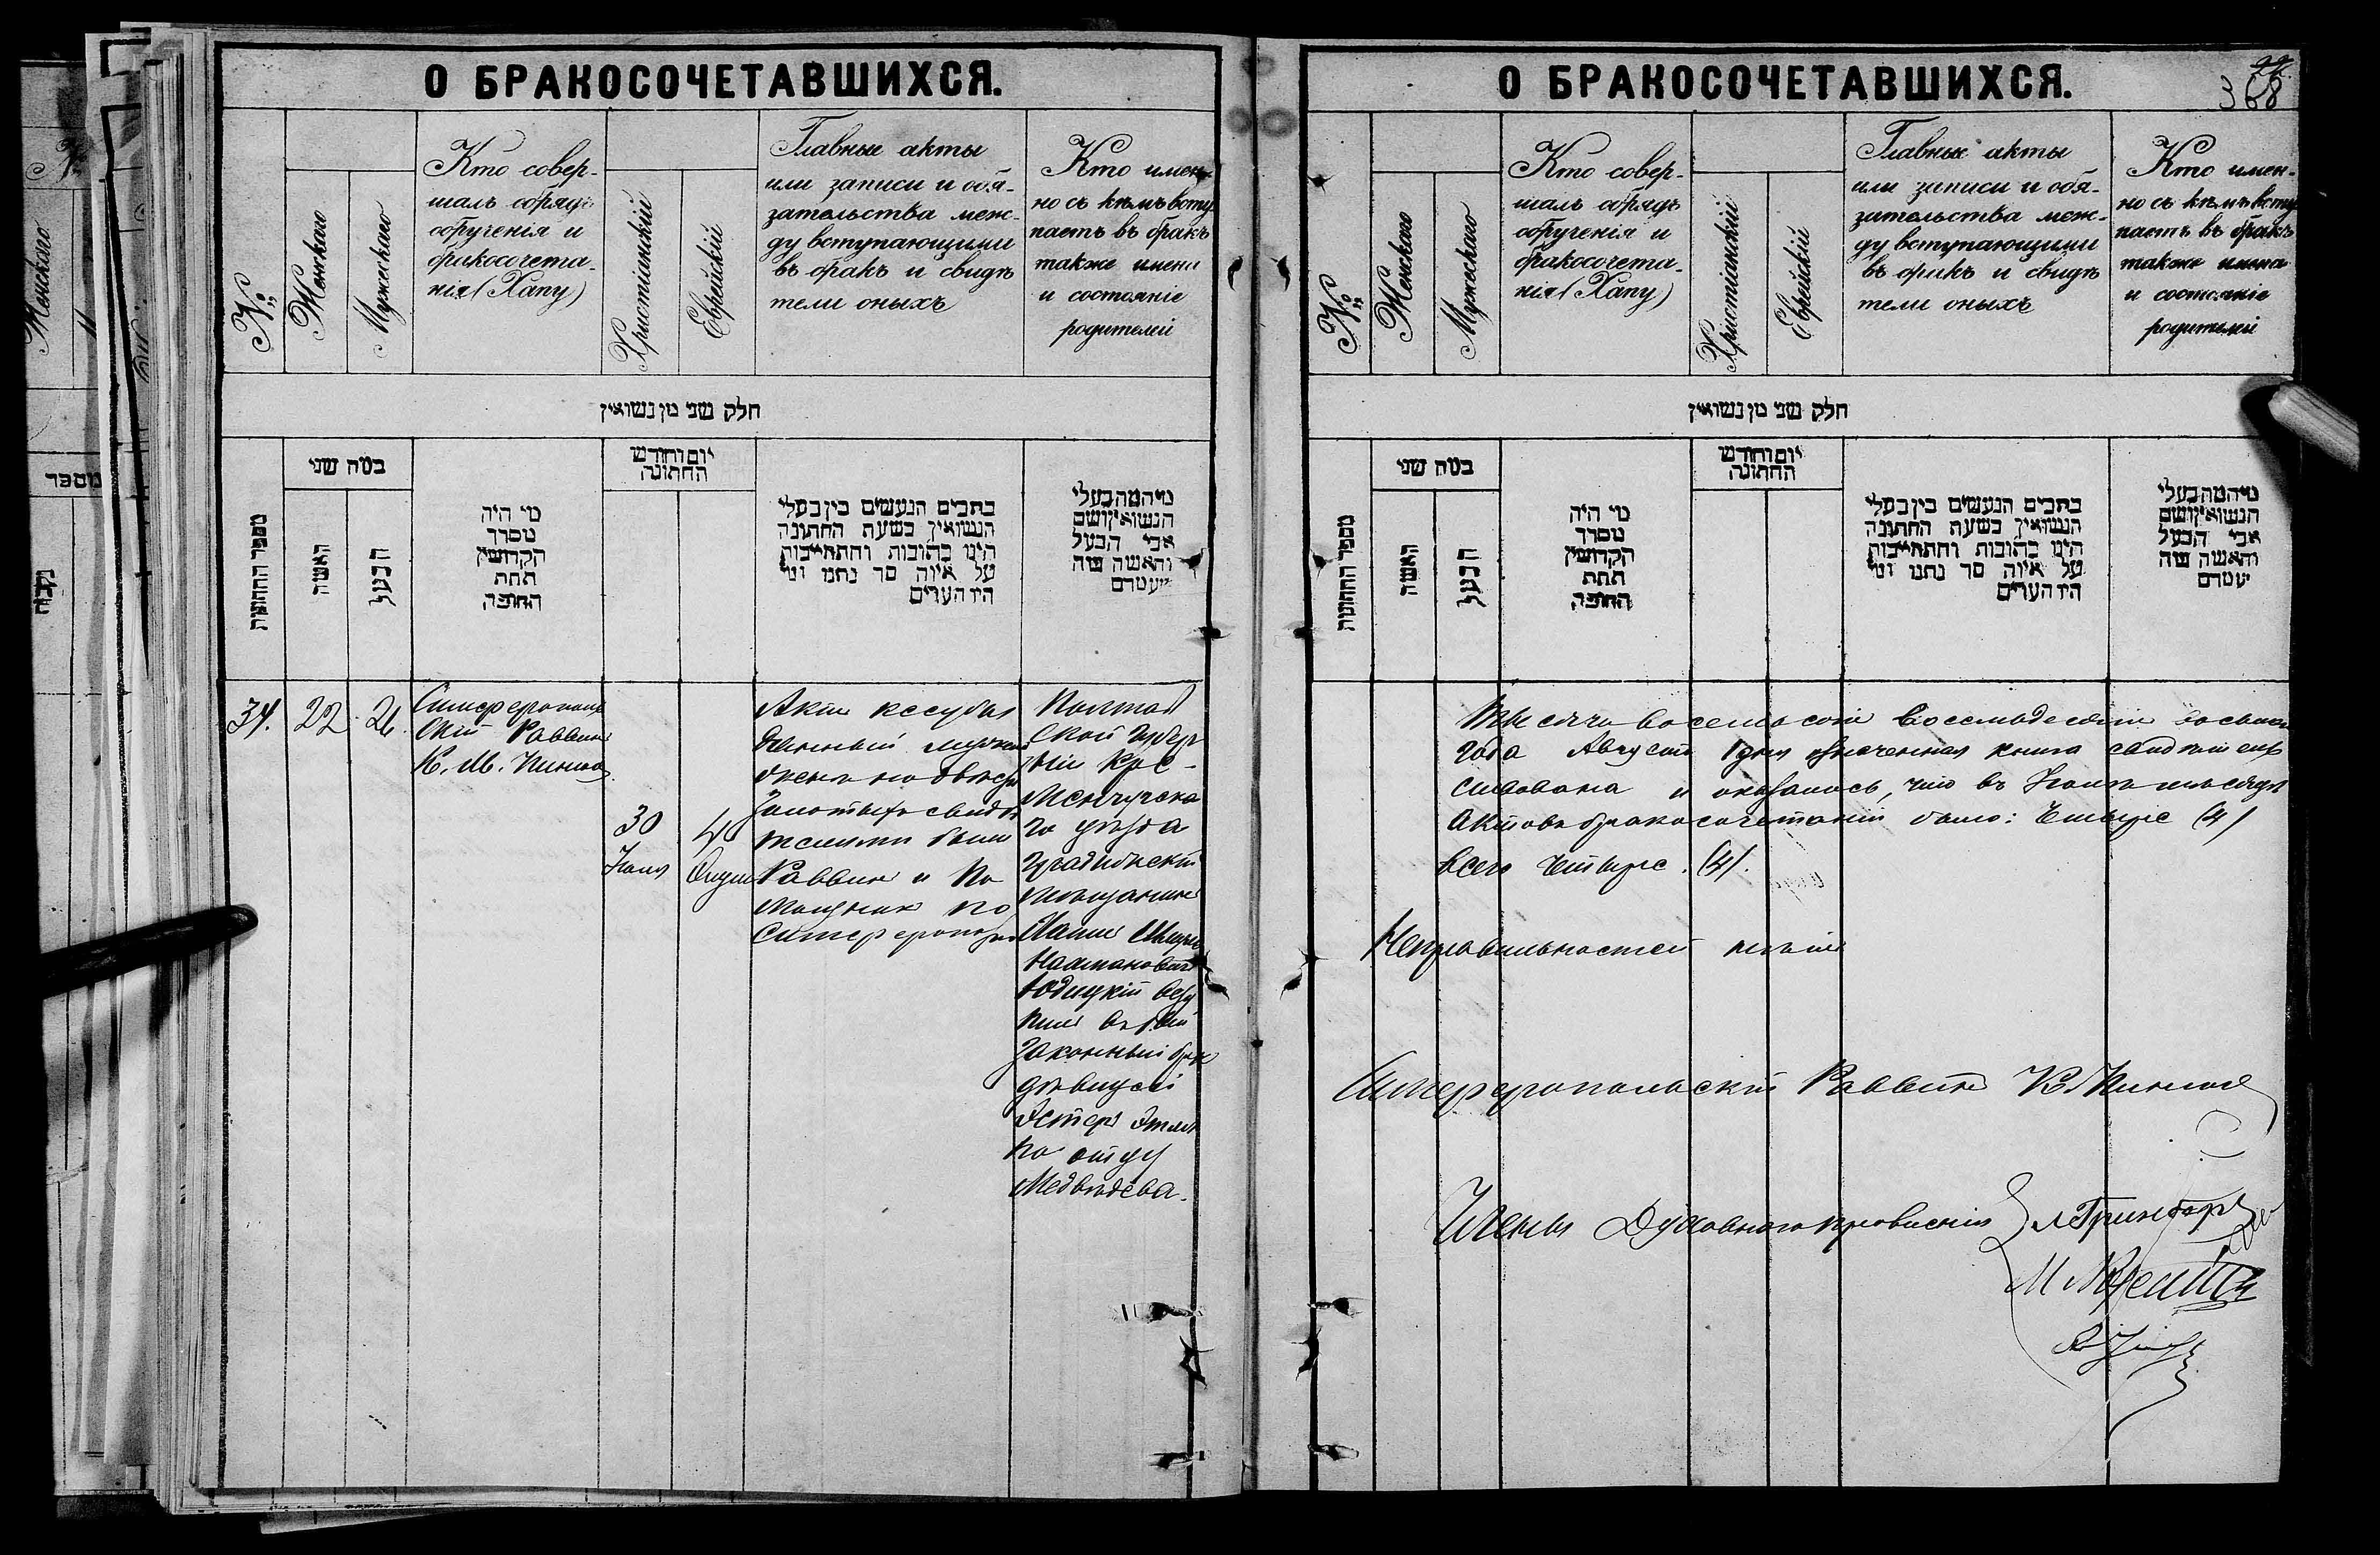 О БРАКОСОЧЕТАВШИХСЯ.
№
Женскаго
Мужескаго
Кто совер-
шалъ обрядъ
обрученія и
бракосочета-
нія (Хапу)
Христіанскій
Еврейскій
Главные акты
или записи и обя-
зательства меж-
ду вступающими
въ бракъ и свидѣ
тели оныхъ
Кто имен-
но съ кѣмъ всту
паетъ въ бракъ
также имена
и состояніе
родителей
חלק שני מן נשואין
מספר החתונות
כמה שני
האשה
הבעל
מי היה
מסדר
הקדושין
תחת
החופה
יום וחודש
החתונה
כתבים הנעשים בין בעלי
הנשואין בשעת החתונה
היינו כתובות והתחייבות
על איזה סך נתנו ומי
היו העדים
מי המה בעלי
הנשואין ושם
אבי הבעל
והאשה ומה
מעמדם
34. 22. 26.
Симферополь
скій Раввинъ
К. М. Пинмо
30
Іюля
4
Акты кесубы
данный мужемъ
женѣ на двѣсти
Золотыхъ свидѣ
телями были
Раввинъ и По
мощникъ по
Симферополю
Полтав
ской губер
ніи Кре-
менчугска
го уѣзда
Градижскій
мѣщанинъ
Нахмановичъ
Юдицкій всту
пилъ въ 1вый
законный брак
дѣвицей
Эстеръ Этля
по отцу
Медвѣдева.
О БРАКОСОЧЕТАВШИХСЯ.
368
№
Женскаго
Мужескаго
Кто совер-
шалъ обрядъ
обрученія и
бракосочета-
нія (Хапу)
Христіанскій
Еврейскій
Главные акты
или записи и обя-
зательства меж-
ду вступающими
въ бракъ и свидѣ
тели оныхъ
Кто имен-
но съ кѣмъ всту
паетъ въ бракъ
также имена
и состояніе
родителей
חלק שני מן נשואין
מספר החתונות
כמה שני
האשה
הבעל
מי היה
מסדר
הקדושין
תחת
החופה
יום וחודש
החתונה
כתבים הנעשים בין בעלי
הנשואין בשעת החתונה
היינו כתובות והתחייבות
על איזה סך נתנו ומי
היו העדים
מי המה בעלי
הנשואין ושם
אבי הבעל
והאשה ומה
מעמדם
Тысяча восемьсотъ восемьдесятъ восьмого
года Августа 1 дня означенная книга свидѣтель
ствована и оказалось, что въ Іюлѣ мѣсяцѣ
актовъ бракосочетаній было: Четыре (4)
всего четыре. (4).
Неправильностей нѣтъ
Симферопольскій Раввинъ К. Пинмо
Члены Духовнаго правленія